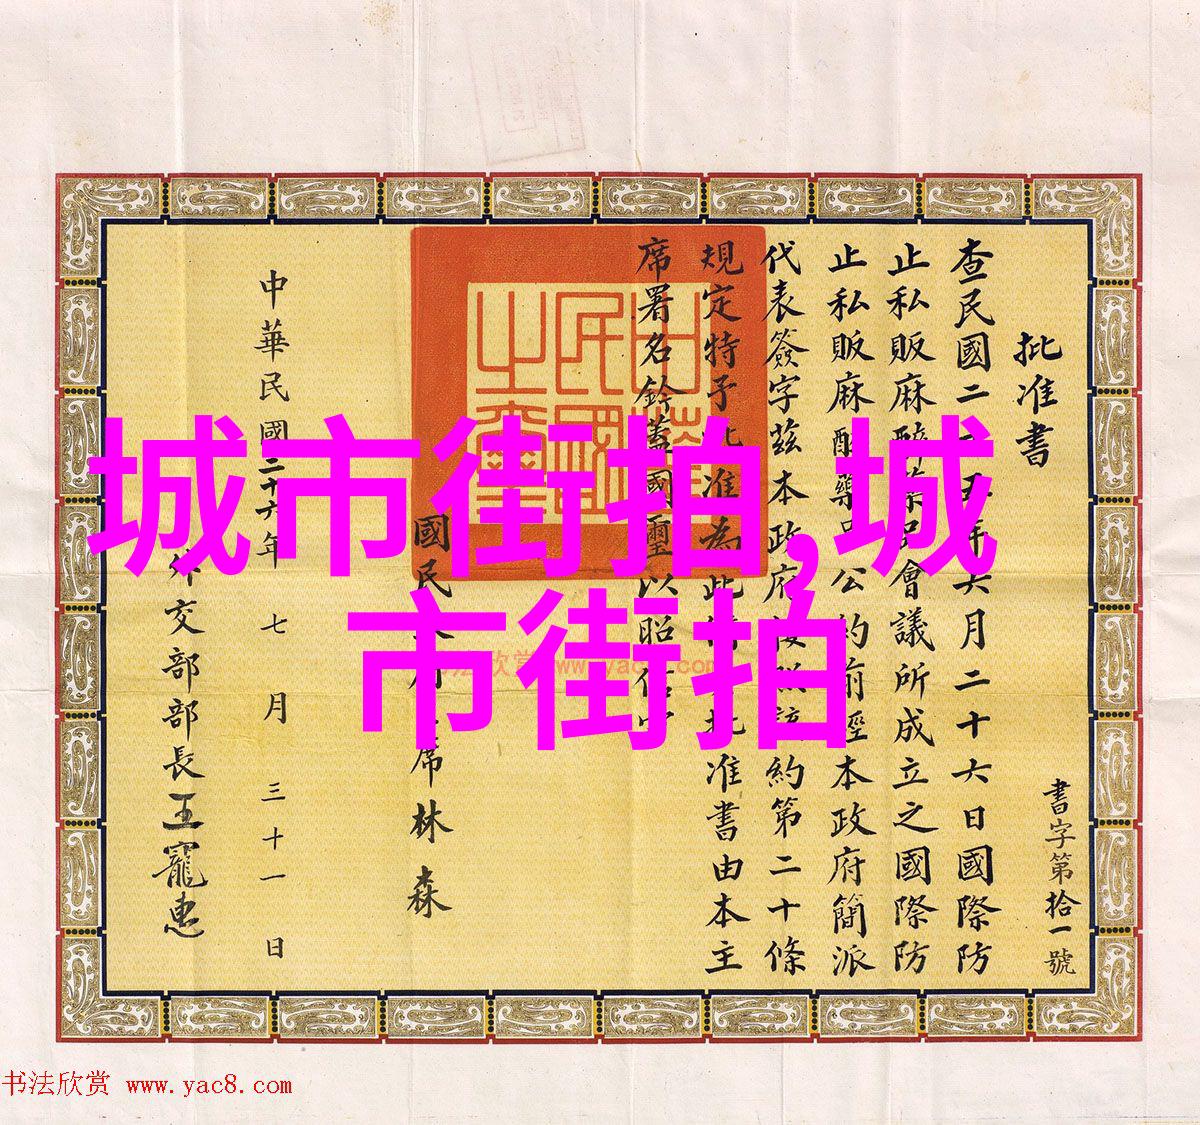 批准書
查民國二十五年六月二十六日國際防
止私販麻醉藥品會議所成立之國際防
止私販麻醉藥品公約前經本政府簡派
代表簽字茲本政府按照該約第二十條
規定特予批准為此備具批准書由本主
席署名鈐蓋國璽以昭信守
國民政府主席林森
中華民國二十六年七月三十一日
外交部部長王寵惠
書字第拾一號
中華民國之璽
城市街拍,城
市街拍
书法欣赏 www.yac8.com
书法欣赏 www.yac8.com